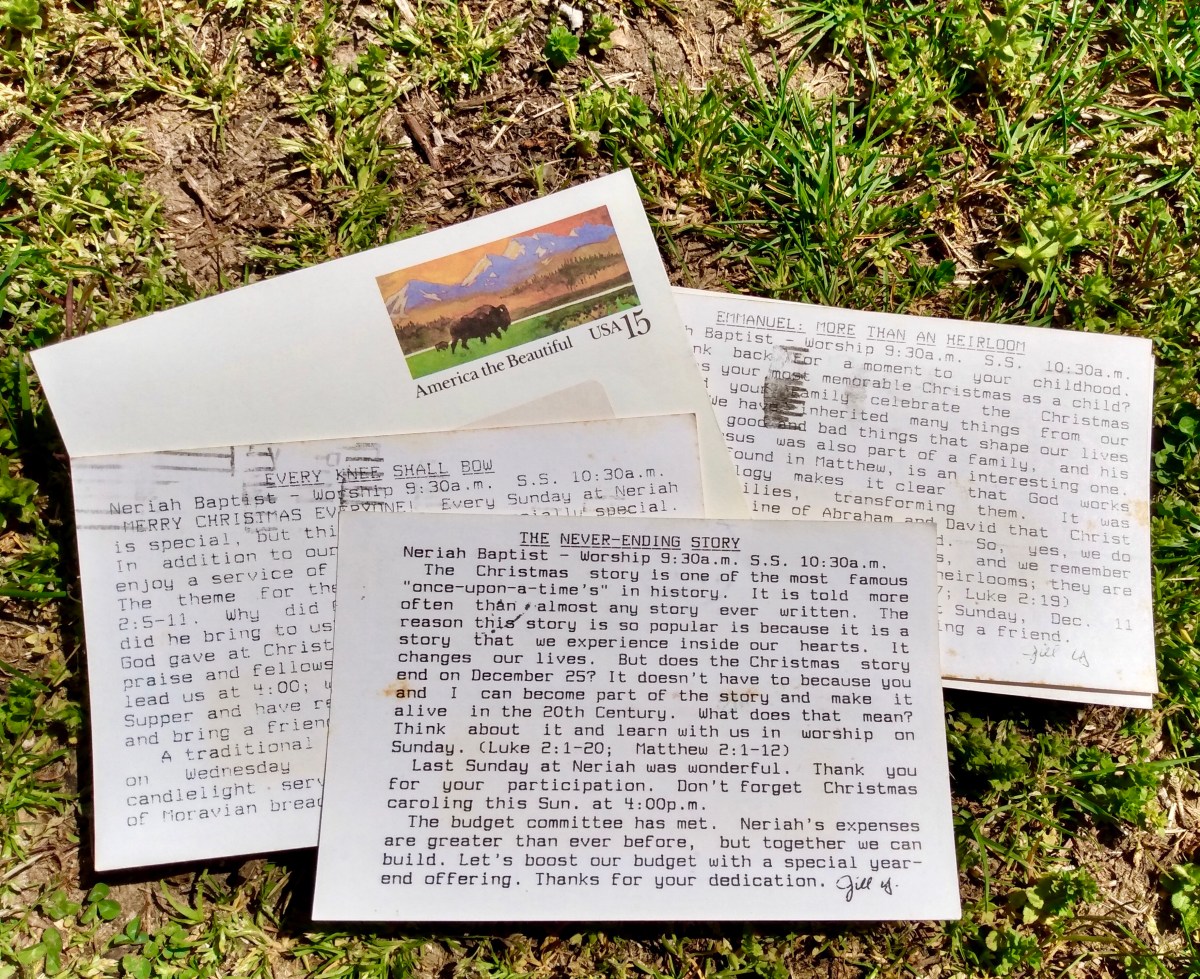 America the Beautiful USA 15
EMMANUEL: MORE THAN AN HEIRLOOM
Baptist - Worship 9:30a.m. S.S. 10:30a.m.
back for a moment to your childhood.
your most memorable Christmas as a child?
your family celebrate the Christmas
We have inherited many things from our
good and bad things that shape our lives
was also part of a family, and his
found in Matthew, is an interesting one.
makes it clear that God works
transforming them. It was
line of Abraham and David that Christ
So, yes, we do
and we remember
heirlooms; they are
Luke 2:19)
Sunday, Dec. 11
a friend.
Jill Y.
EVERY KNEE SHALL BOW
Neriah Baptist - Worship 9:30a.m. S.S. 10:30a.m.
MERRY CHRISTMAS EVERYONE! Every Sunday at Neriah
is special, but special.
In addition to our
enjoy a service of
The theme for the
2:5-11. Why did
did he bring to us
God gave at
praise and
lead us at 4:00;
Supper and have
and bring a
A traditional
on Wednesday
candlelight
of Moravian
THE NEVER-ENDING STORY
Neriah Baptist - Worship 9:30a.m. S.S. 10:30a.m.
The Christmas story is one of the most famous
"once-upon-a-time's" in history. It is told more
often than almost any story ever written. The
reason this story is so popular is because it is a
story that we experience inside our hearts. It
changes our lives. But does the Christmas story
end on December 25? It doesn't have to because you
and I can become part of the story and make it
alive in the 20th Century. What does that mean?
Think about it and learn with us in worship on
Sunday. (Luke 2:1-20; Matthew 2:1-12)
Last Sunday at Neriah was wonderful. Thank you
for your participation. Don't forget Christmas
caroling this Sun. at 4:00p.m.
The budget committee has met. Neriah's expenses
are greater than ever before, but together we can
build. Let's boost our budget with a special year-
end offering. Thanks for your dedication. Jill Y.